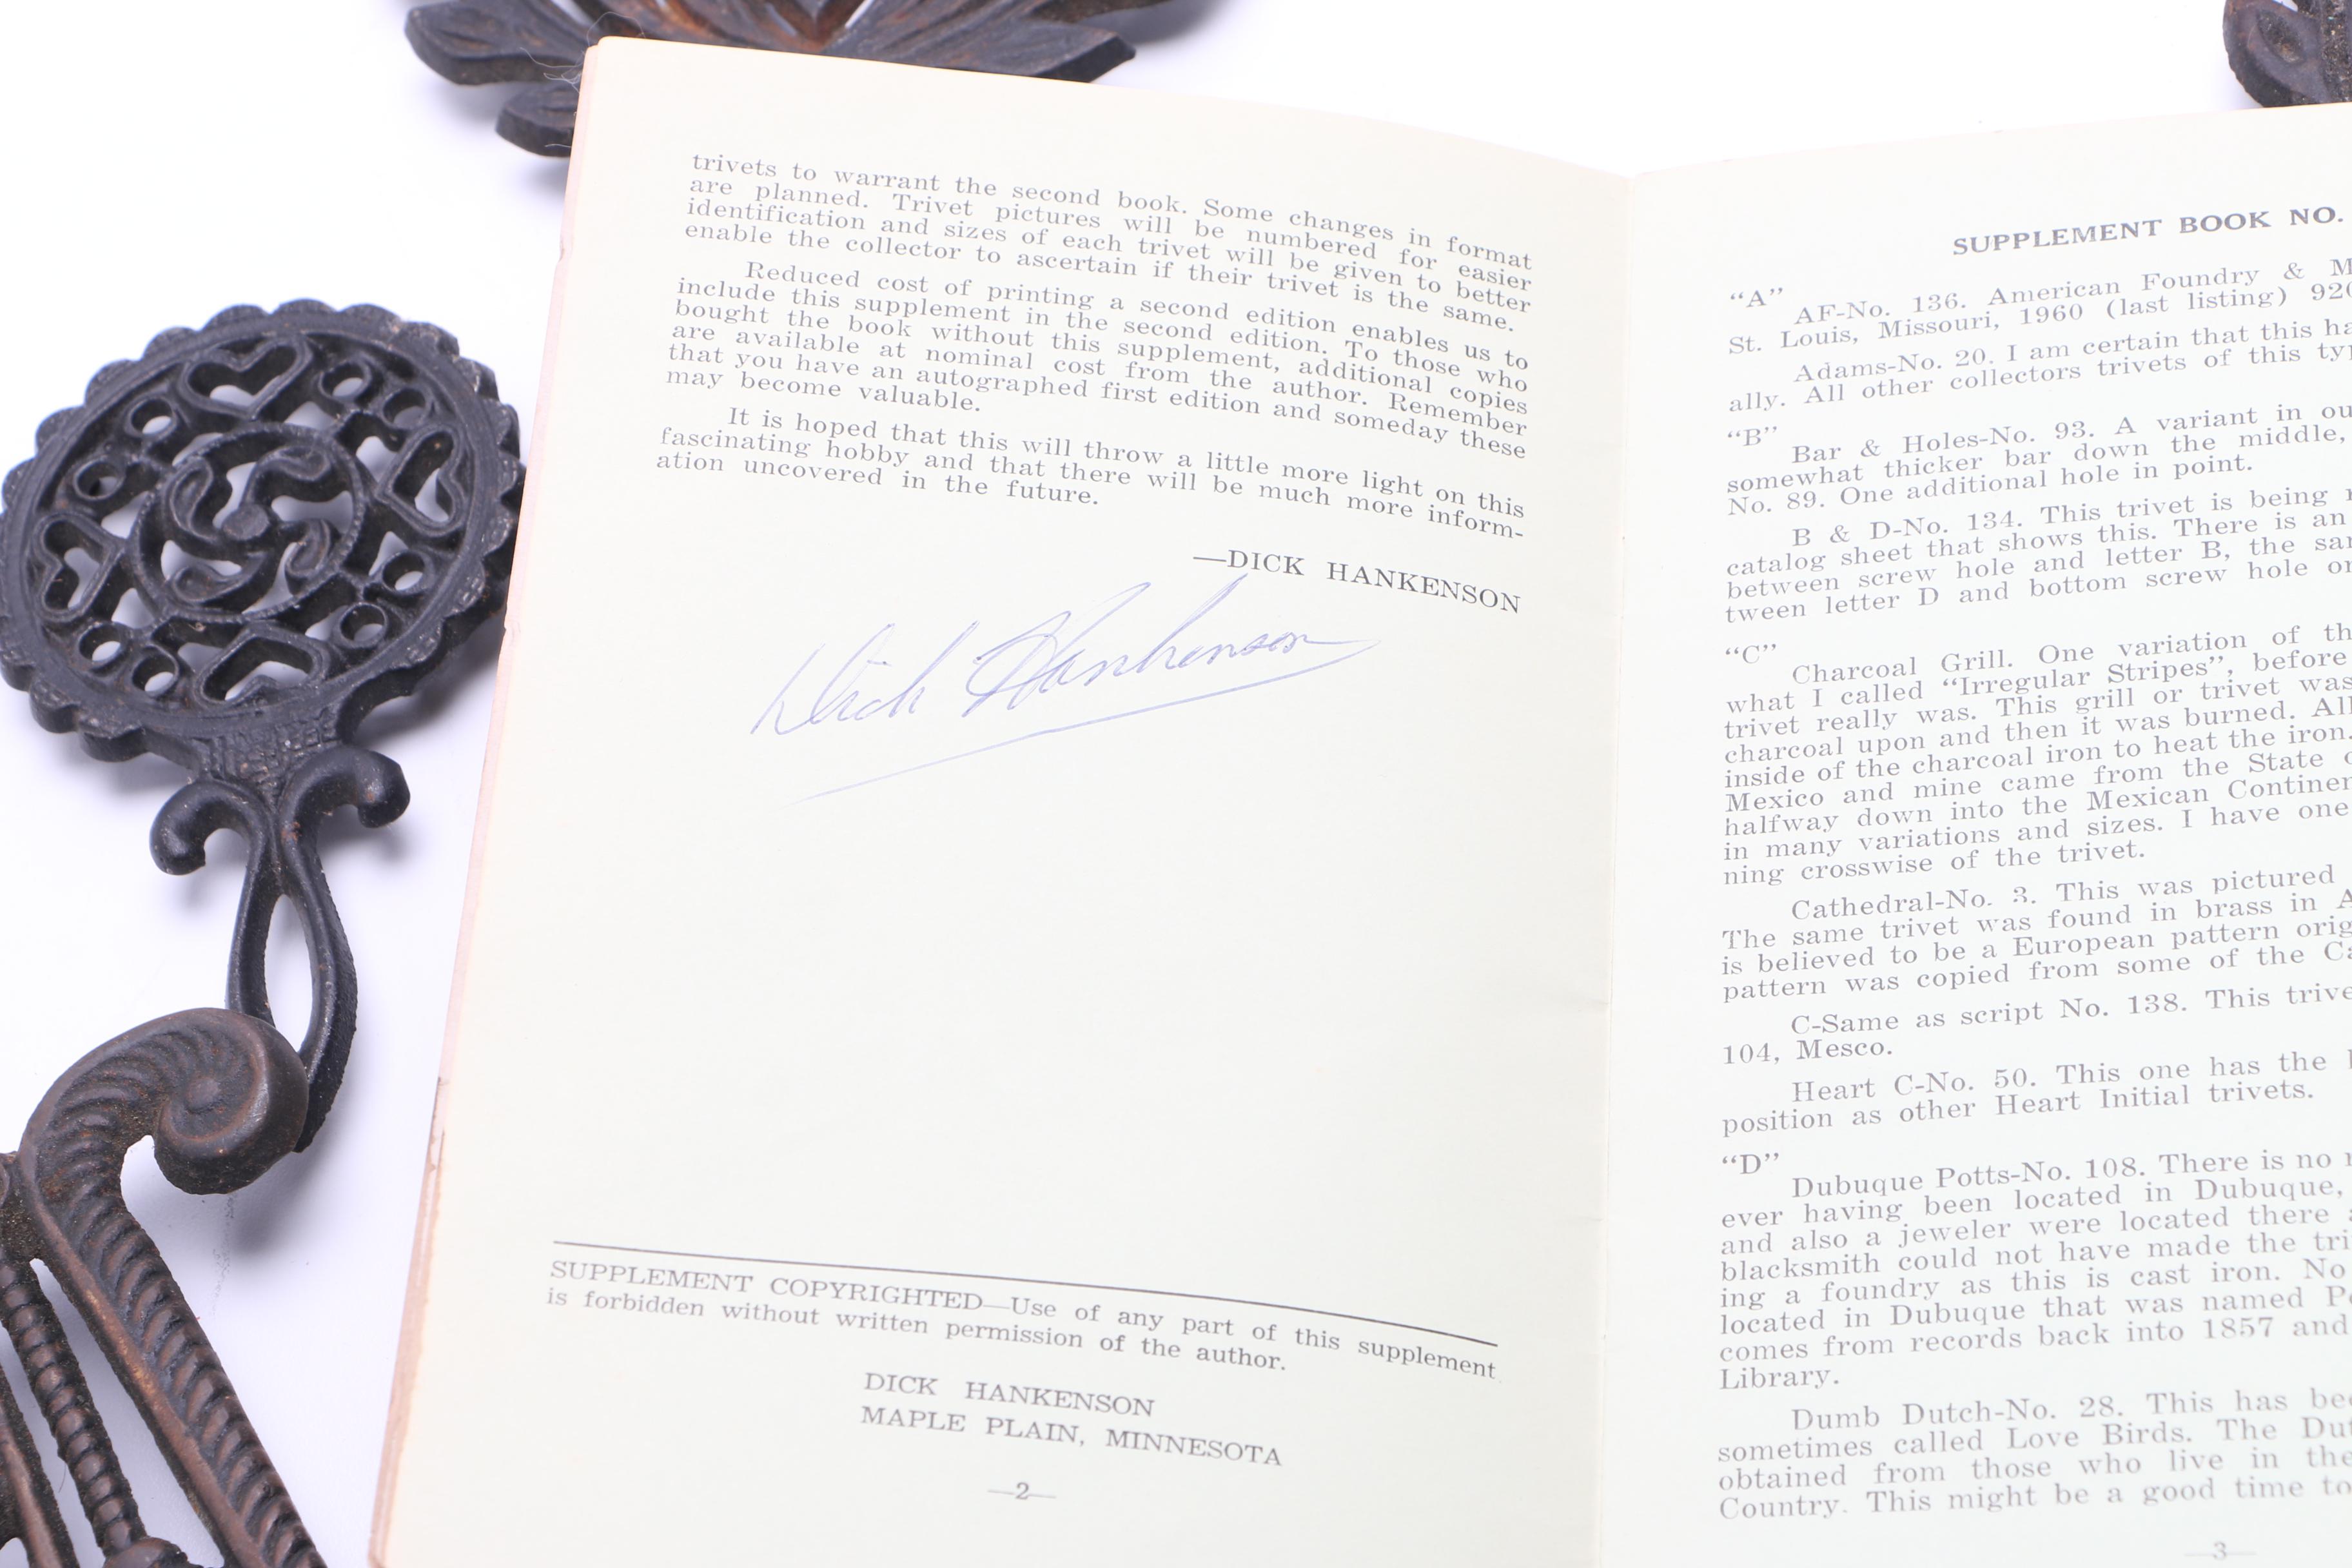 trivets to warrant the second book. Some changes in format
are planned. Trivet pictures will be numbered for easier
identification and sizes of each trivet will be given to better
enable the collector to ascertain if their trivet is the same.
Reduced cost of printing a second edition enables us to
include this supplement in the second edition. To those who
bought the book without this supplement, additional copies
are available at nominal cost from the author. Remember
that you have an autographed first edition and someday these
may become valuable.
It is hoped that this will throw a little more light on this
fascinating hobby and that there will be much more inform-
ation uncovered in the future.
—DICK HANKENSON
Dick Hankenson
SUPPLEMENT COPYRIGHTED—Use of any part of this supplement
is forbidden without written permission of the author.
DICK HANKENSON
MAPLE PLAIN, MINNESOTA
—2—
SUPPLEMENT BOOK NO.
“A”
AF-No. 136. American Foundry & M
St. Louis, Missouri, 1960 (last listing) 920
Adams-No. 20. I am certain that this ha
ally. All other collectors trivets of this typ
“B”
Bar & Holes-No. 93. A variant in ou
somewhat thicker bar down the middle,
No. 89. One additional hole in point.
B & D-No. 134. This trivet is being
catalog sheet that shows this. There is an
between screw hole and letter B, the sa
tween letter D and bottom screw hole or
“C”
Charcoal Grill. One variation of th
what I called “Irregular Stripes”, before
trivet really was. This grill or trivet was
charcoal upon and then it was burned. All
inside of the charcoal iron to heat the iron.
Mexico and mine came from the State
halfway down into the Mexican Continen
in many variations and sizes. I have one
ning crosswise of the trivet.
Cathedral-No. 3. This was pictured
The same trivet was found in brass in A
is believed to be a European pattern orig
pattern was copied from some of the Ca
C-Same as script No. 138. This trive
104, Mesco.
Heart C-No. 50. This one has the
position as other Heart Initial trivets.
“D”
Dubuque Potts-No. 108. There is no
ever having been located in Dubuque,
and also a jeweler were located there
blacksmith could not have made the tri
ing a foundry as this is cast iron. No
located in Dubuque that was named P
comes from records back into 1857 and
Library.
Dumb Dutch-No. 28. This has bee
sometimes called Love Birds. The Dut
obtained from those who live in the
Country. This might be a good time to
—3—